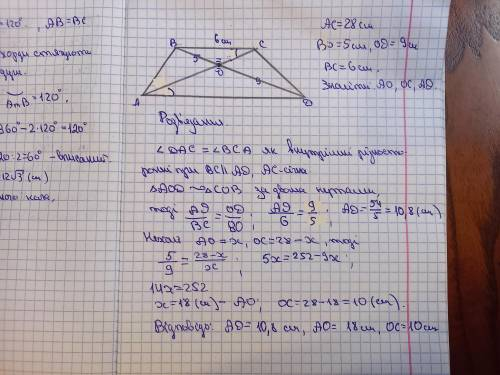 =120°, AB=BC
хорди стягують
дуги.
BmB=120°,
360°-2·120°=120°
20:2=60° - вписаний
12√3 (см)
6 см
B
C
5
O
9
A
D
AC=28 см
BO=5 см, OD=9 см
BC=6 см.
Знайти AO, OC, AD.
Розв'язання.
∠DAC=∠BCA як внутрішні різносто-
ронні при BC∥AD, AC-січна
△AOD ~ △COB за двома кутами,
тоді AD/BC = OD/BO; AD/6 = 9/5; AD=54/5=10,8 (см)
Нехай AO=x, OC=28-x, тоді
5/9 = 28-x/x; 5x=252-9x;
14x=252
x=18 (см) - AO; OC=28-18=10 (см).
Відповідь: AD=10,8 см, AO=18см, OC=10см